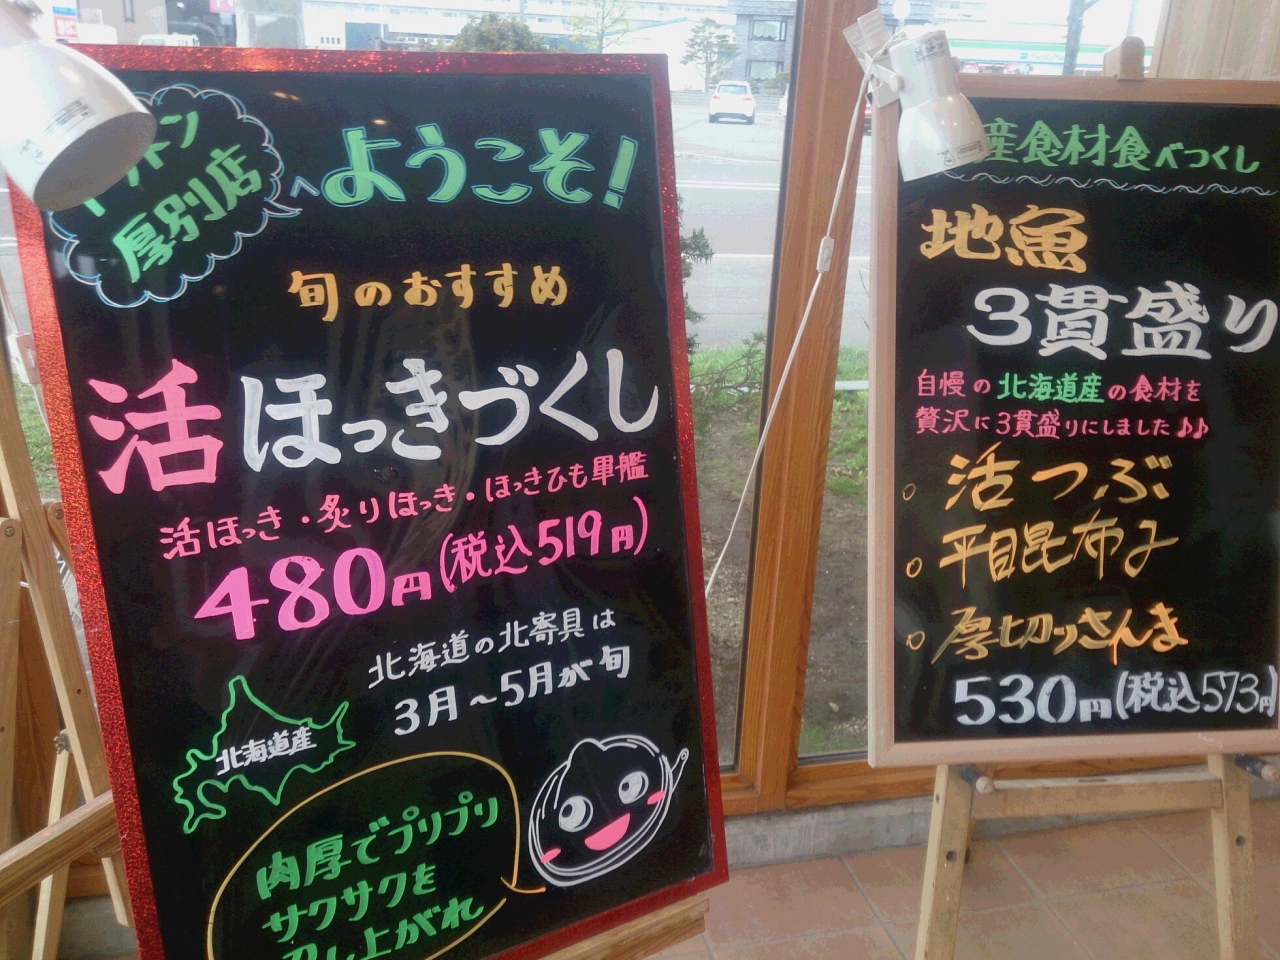 トリトン
厚別店
へようこそ!
旬のおすすめ
活ほっきづくし
活ほっき・炙りほっき・ほっきひも軍艦
480円(税込519円)
北海道の北寄貝は
3月~5月が旬
北海道産
肉厚でプリプリ
サクサクを
召し上がれ
産食材食べつくし
地魚
3貫盛り
自慢の北海道産の食材を
贅沢に3貫盛りにしました♪♪
○活つぶ
○平目昆布〆
○厚切りさんま
530円(税込573円)